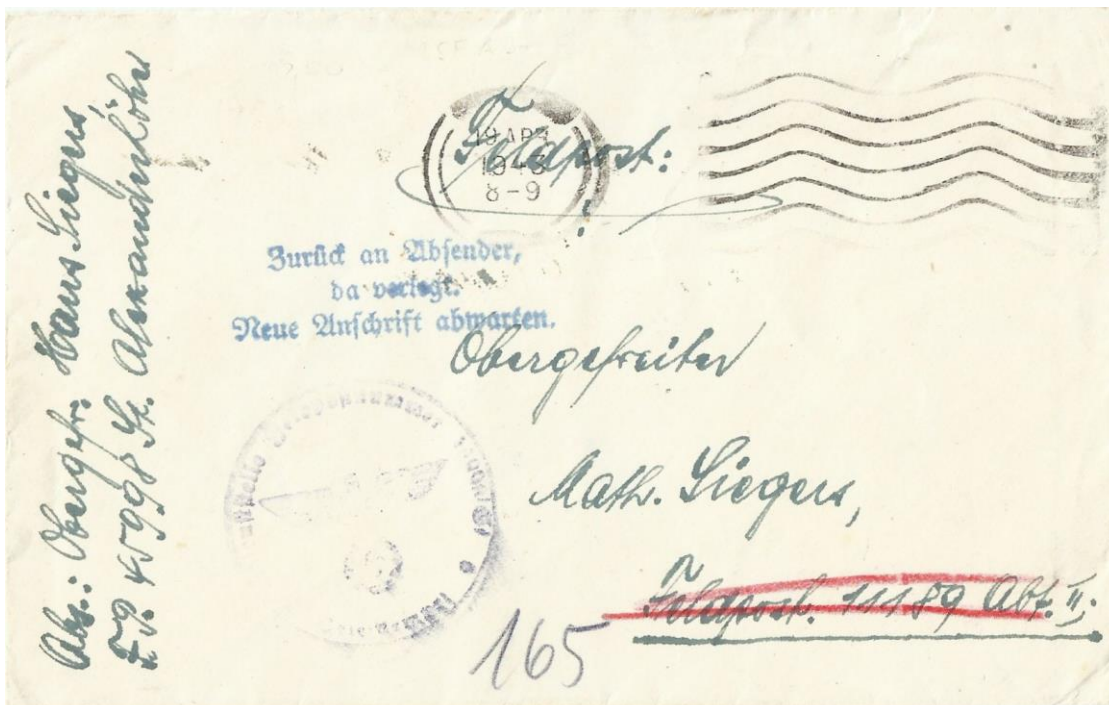 Abs.: Obergefr. Hans Siegers,
F.P. 45998 St. Alexanderhöhe
Feldpost:
1943
8-9
Zurück an Absender,
da verlegt.
Neue Anschrift abwarten.
Obergefreiter
Math. Siegers,
Feldpost. 11189 Abt. II;
165